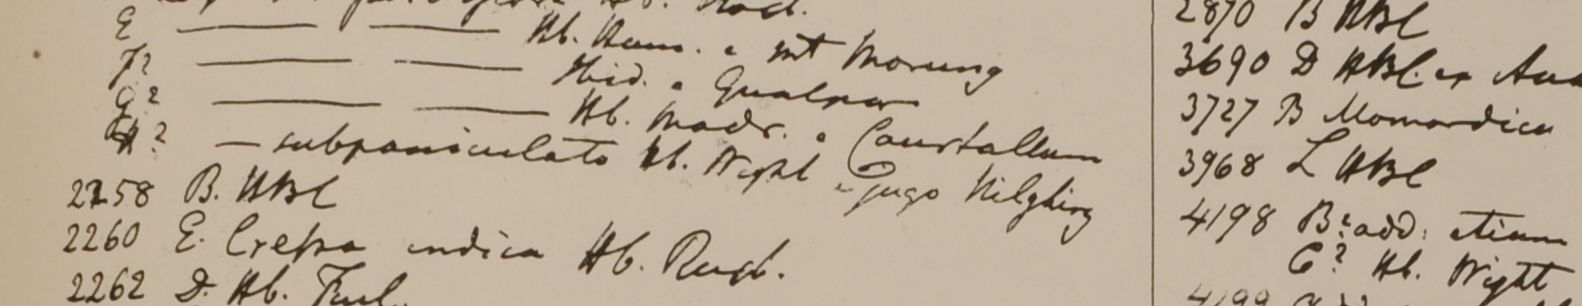 E — — Hb. Ham. e mt Morung
F? — — Ibid. e Gualpar
G? — — Hb. Madr. e Courtallum
H? — subpaniculata Hb. Wight e Jugo Nilghiry
2258 B. HBC
2260 E. Crepa indica Hb. Roxb.
2262 D. Hb.
2870 B HBC
3690 D HBC. ex
3727 B Momordica
3968 L HBC
4198 B? add. etiam
C? Hb. Wight
4199